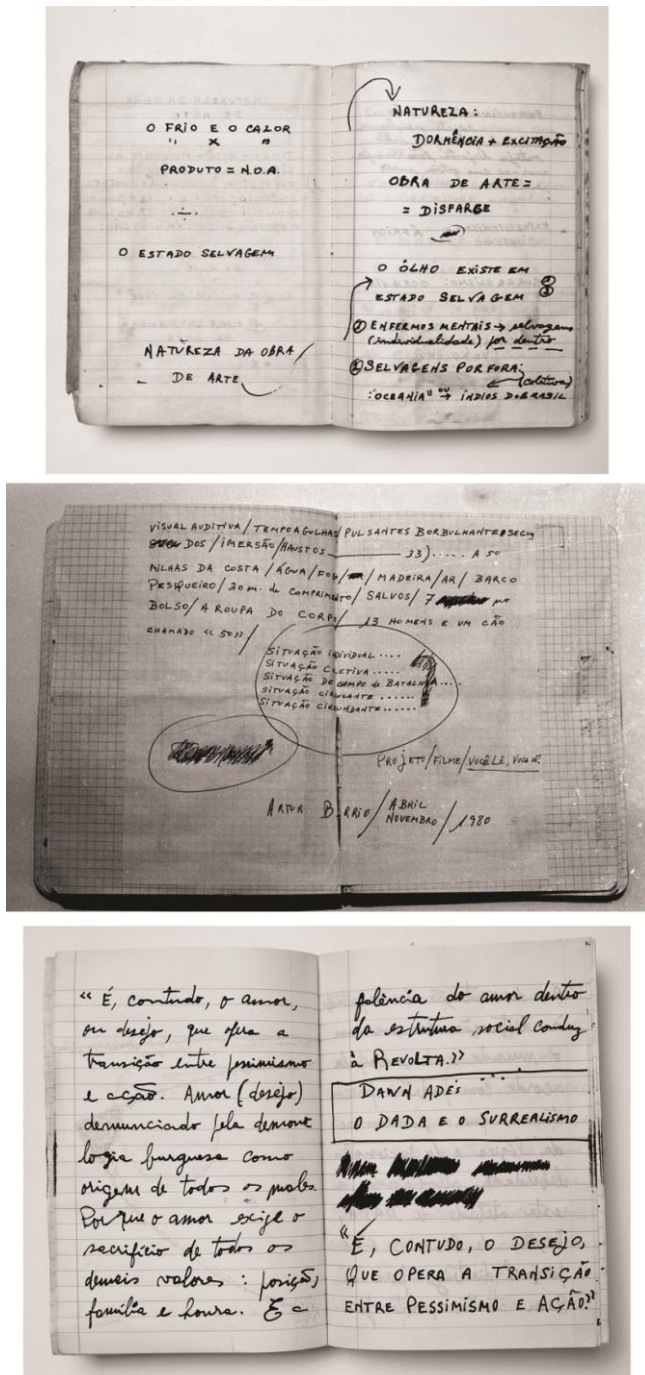 O FRIO E O CALOR
" X "
PRODUTO = N.O.A.
.÷.
O ESTADO SELVAGEM
NATUREZA DA OBRA /
DE ARTE
NATUREZA:
DORMÊNCIA + EXCITAÇÃO
OBRA DE ARTE =
= DISFARSE
O ÔLHO EXISTE EM
ESTADO SELVAGEM ① ②
① ENFERMOS MENTAIS → selvagens
(individualidade) por dentro
② SELVAGENS POR FORA:
(coletivo)
:"OCEANIA" ou → ÍNDIOS DO BRASIL
VISUAL AUDITIVA / TEMPO AGULHAS / PULSANTES BORBULHANTES SEGUN
DOS / IMERSÃO / HAUSTOS 33) ..... A 50
MILHAS DA COSTA / ÁGUA / FOGO / / MADEIRA / AR / BARCO
PESQUEIRO / 30 m. de COMPRIMENTO / SALVOS / 7 no
BOLSO / A ROUPA DO CORPO / 13 HOMENS E UM CÃO
CHAMADO << 50 >> /
SITUAÇÃO INDIVIDUAL ....
SITUAÇÃO COLETIVA .....
SITUAÇÃO DE CAMPO de BATALHA ....
SITUAÇÃO CIRCULANTE ......
SITUAÇÃO CIRCUNDANTE ......
PROJETO / FILME / VOCÊ LÊ, VOCÊ
ARTUR BARRIO / ABRIL
NOVEMBRO / 1980
<< É, contudo, o amor,
ou desejo, que opera a
transição entre pessimismo
e acção. Amor (desejo)
denunciado pela
logia burguesa como
origem de todos os males.
Por que o amor exige o
sacrifício de todos os
demais valores : posição,
família e honra. E a
falência do amor dentro
da estrutura social conduz
à REVOLTA. >>
DAWN ADES ...
O DADA E O SURREALISMO
"É, CONTUDO, O DESEJO,
QUE OPERA A TRANSIÇÃO
ENTRE PESSIMISMO E AÇÃO."